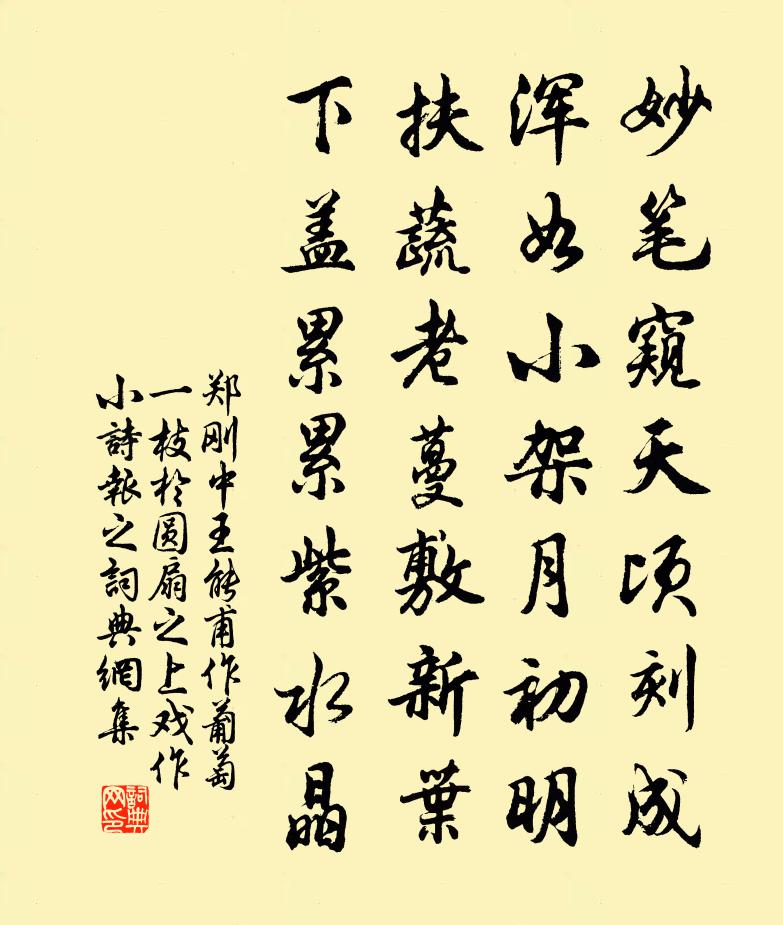 妙笔窥天顷刻成
浑如小架月初明
扶蔬老蔓敷新葉
下盖累累紫水晶
郑刚中王能甫作葡萄
一枝於圆扇之上戏作
小詩報之詞典網集
詞典
网印